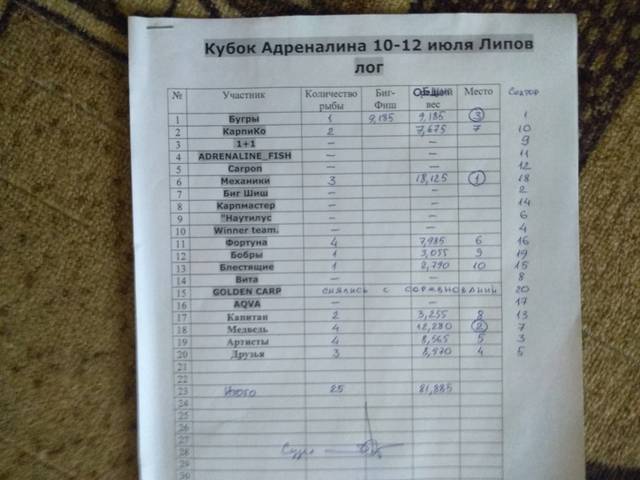 Кубок Адреналина 10-12 июля Липов
лог
№ Участник Количество рыбы Биг-Фиш Общий вес Место Сектор
1 Бугры 1 9,185 9,185 3 1
2 КарпиКо 2 7,675 7 10
3 1+1 — — 9
4 ADRENALINE_FISH — — 11
5 Carpon — — 12
6 Механики 3 18,125 1 18
7 Биг Шиш — — 2
8 Карпмастер — — 14
9 "Наутилус — — 6
10 Winner team. — — 4
11 Фортуна 4 7,985 6 16
12 Бобры 1 3,055 9 19
13 Блестящие 1 2,790 10 15
14 Вита — — 8
15 GOLDEN CARP снялись с соревнований 20
16 AQVA — — 17
17 Капитан 2 3,255 8 13
18 Медведь 4 12,280 2 7
19 Артисты 4 8,565 5 3
20 Друзья 3 8,970 4 5
21
22
23 Итого 25 81,885
24
25
26
27
28 Судья
29
30